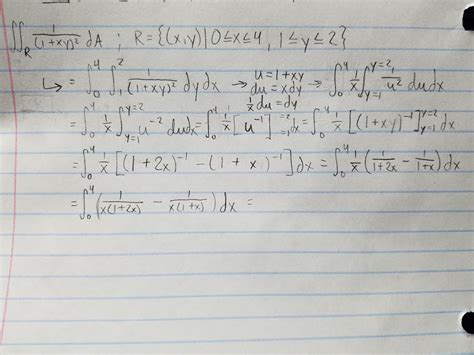 ∬_R 1/(1+xy)² dA ; R={(x,y)|0≤x≤4, 1≤y≤2}
↳ = ∫₀⁴ ∫₁² 1/(1+xy)² dy dx → u=1+xy du=xdy 1/x du=dy → ∫₀⁴ 1/x ∫_{y=1}^{y=2} 1/u² du dx
= ∫₀⁴ 1/x ∫_{y=1}^{y=2} u⁻² du dx = ∫₀⁴ 1/x [u⁻¹]_{=1}^{=2} dx = ∫₀⁴ 1/x [(1+xy)⁻¹]_{y=1}^{y=2} dx
= ∫₀⁴ 1/x [(1+2x)⁻¹ - (1+x)⁻¹] dx = ∫₀⁴ 1/x (1/(1+2x) - 1/(1+x)) dx
= ∫₀⁴ (1/(x(1+2x)) - 1/(x(1+x))) dx =